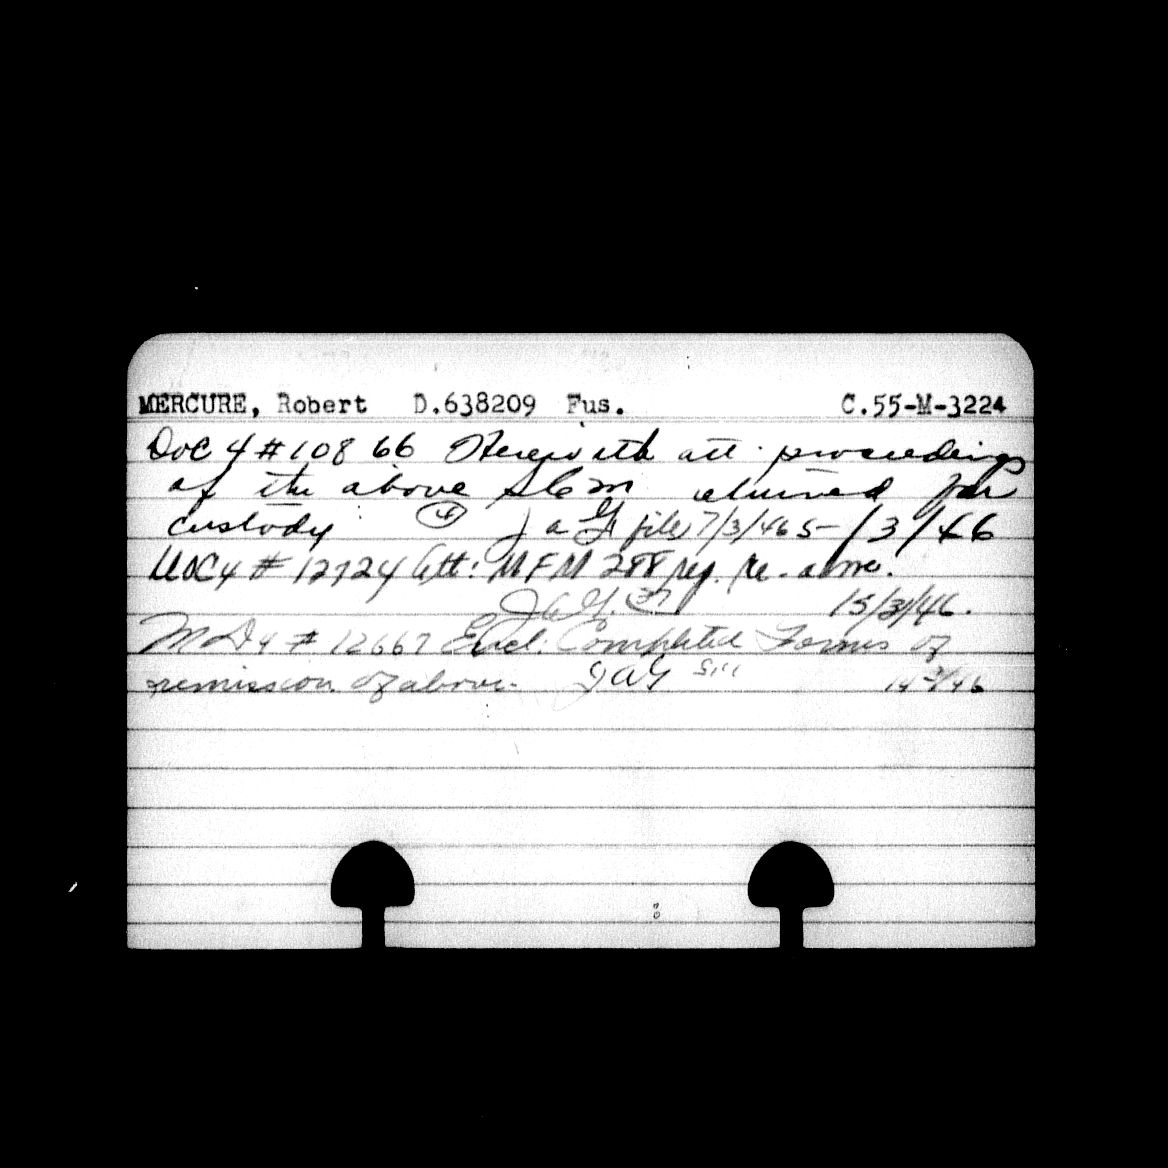 MERCURE, Robert D.638209 Fus. C.55-M-3224
DOC 4 # 10866 Herewith att. proceedings
of the above returned for
custody (4) JAG file 7/3/46 5/3/46
DOC 4 # 12724 Att: MFM 288 re.
JAG. 15/3/46.
MD 4 # 12667 Encl: Completed Forms of
remission of above. JAG 14/3/46